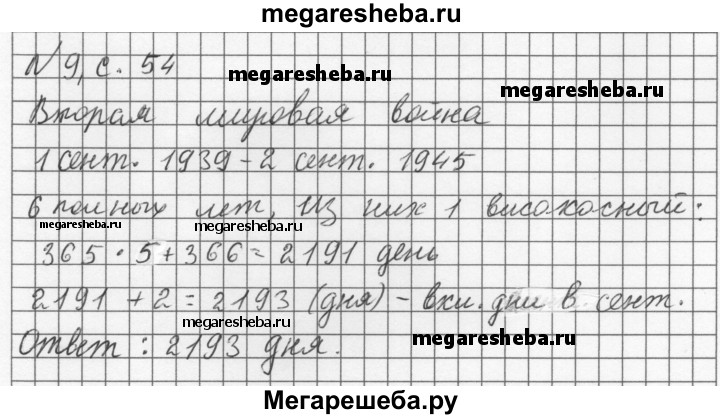 megaresheba.ru
№ 9, с. 54
megaresheba.ru
megaresheba.ru
Вторая мировая война
1 сент. 1939 - 2 сент. 1945
6 полных лет, из них 1 високосный:
megaresheba.ru
megaresheba.ru
365 · 5 + 366 = 2191 день
2191 + 2 = 2193 (дня) - вкл. дни в сент.
megaresheba.ru
Ответ : 2193 дня.
megaresheba.ru
Мегарешеба.ру